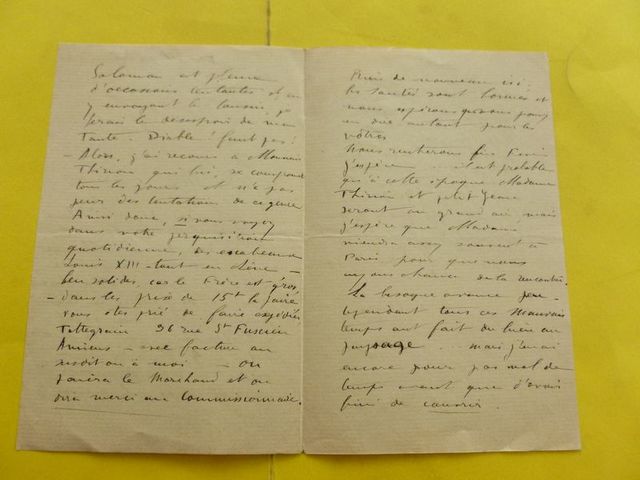 Salomon et pleine
d'occasions tentantes et en
y envoyant le cousin, je
ferais le désespoir de ma
Tante. Diable ! faut pas !
- Alors, j'ai recours à Monsieur
Thirion qui lui, se
tous les jours et n'a pas
peur des tentations de ce genre
Ainsi donc, si vous voyez
dans votre perquisition
quotidienne, des escabeaux
Louis XIII - tout en chêne -
ben solides, car le Frère est gros,
- dans les prix de 15f la paire
vous êtes prié de faire expédier
Tattegrain 96 rue St Fuscien
Amiens - avec facture au
susdit ou à moi - on
paiera le Marchand et on
dira merci au Commissionnaire.
Rien de nouveau ici :
les santés sont bonnes et
nous espérons que vous pouvez
en dire autant pour les
vôtres
Nous rentrerons fin
j'espère il est probable
qu'à cette époque Madame
Thirion et petit Jean
seront au grand air mais
j'espère que Madame
viendra assez souvent à
Paris pour que nous
ayons chance de la rencontrer.
La besogne avance peu
cependant tous ces mauvais
temps ont fait du bien au
paysage mais j'en ai
encore pour pas mal de
temps avant que d'avoir
fini de